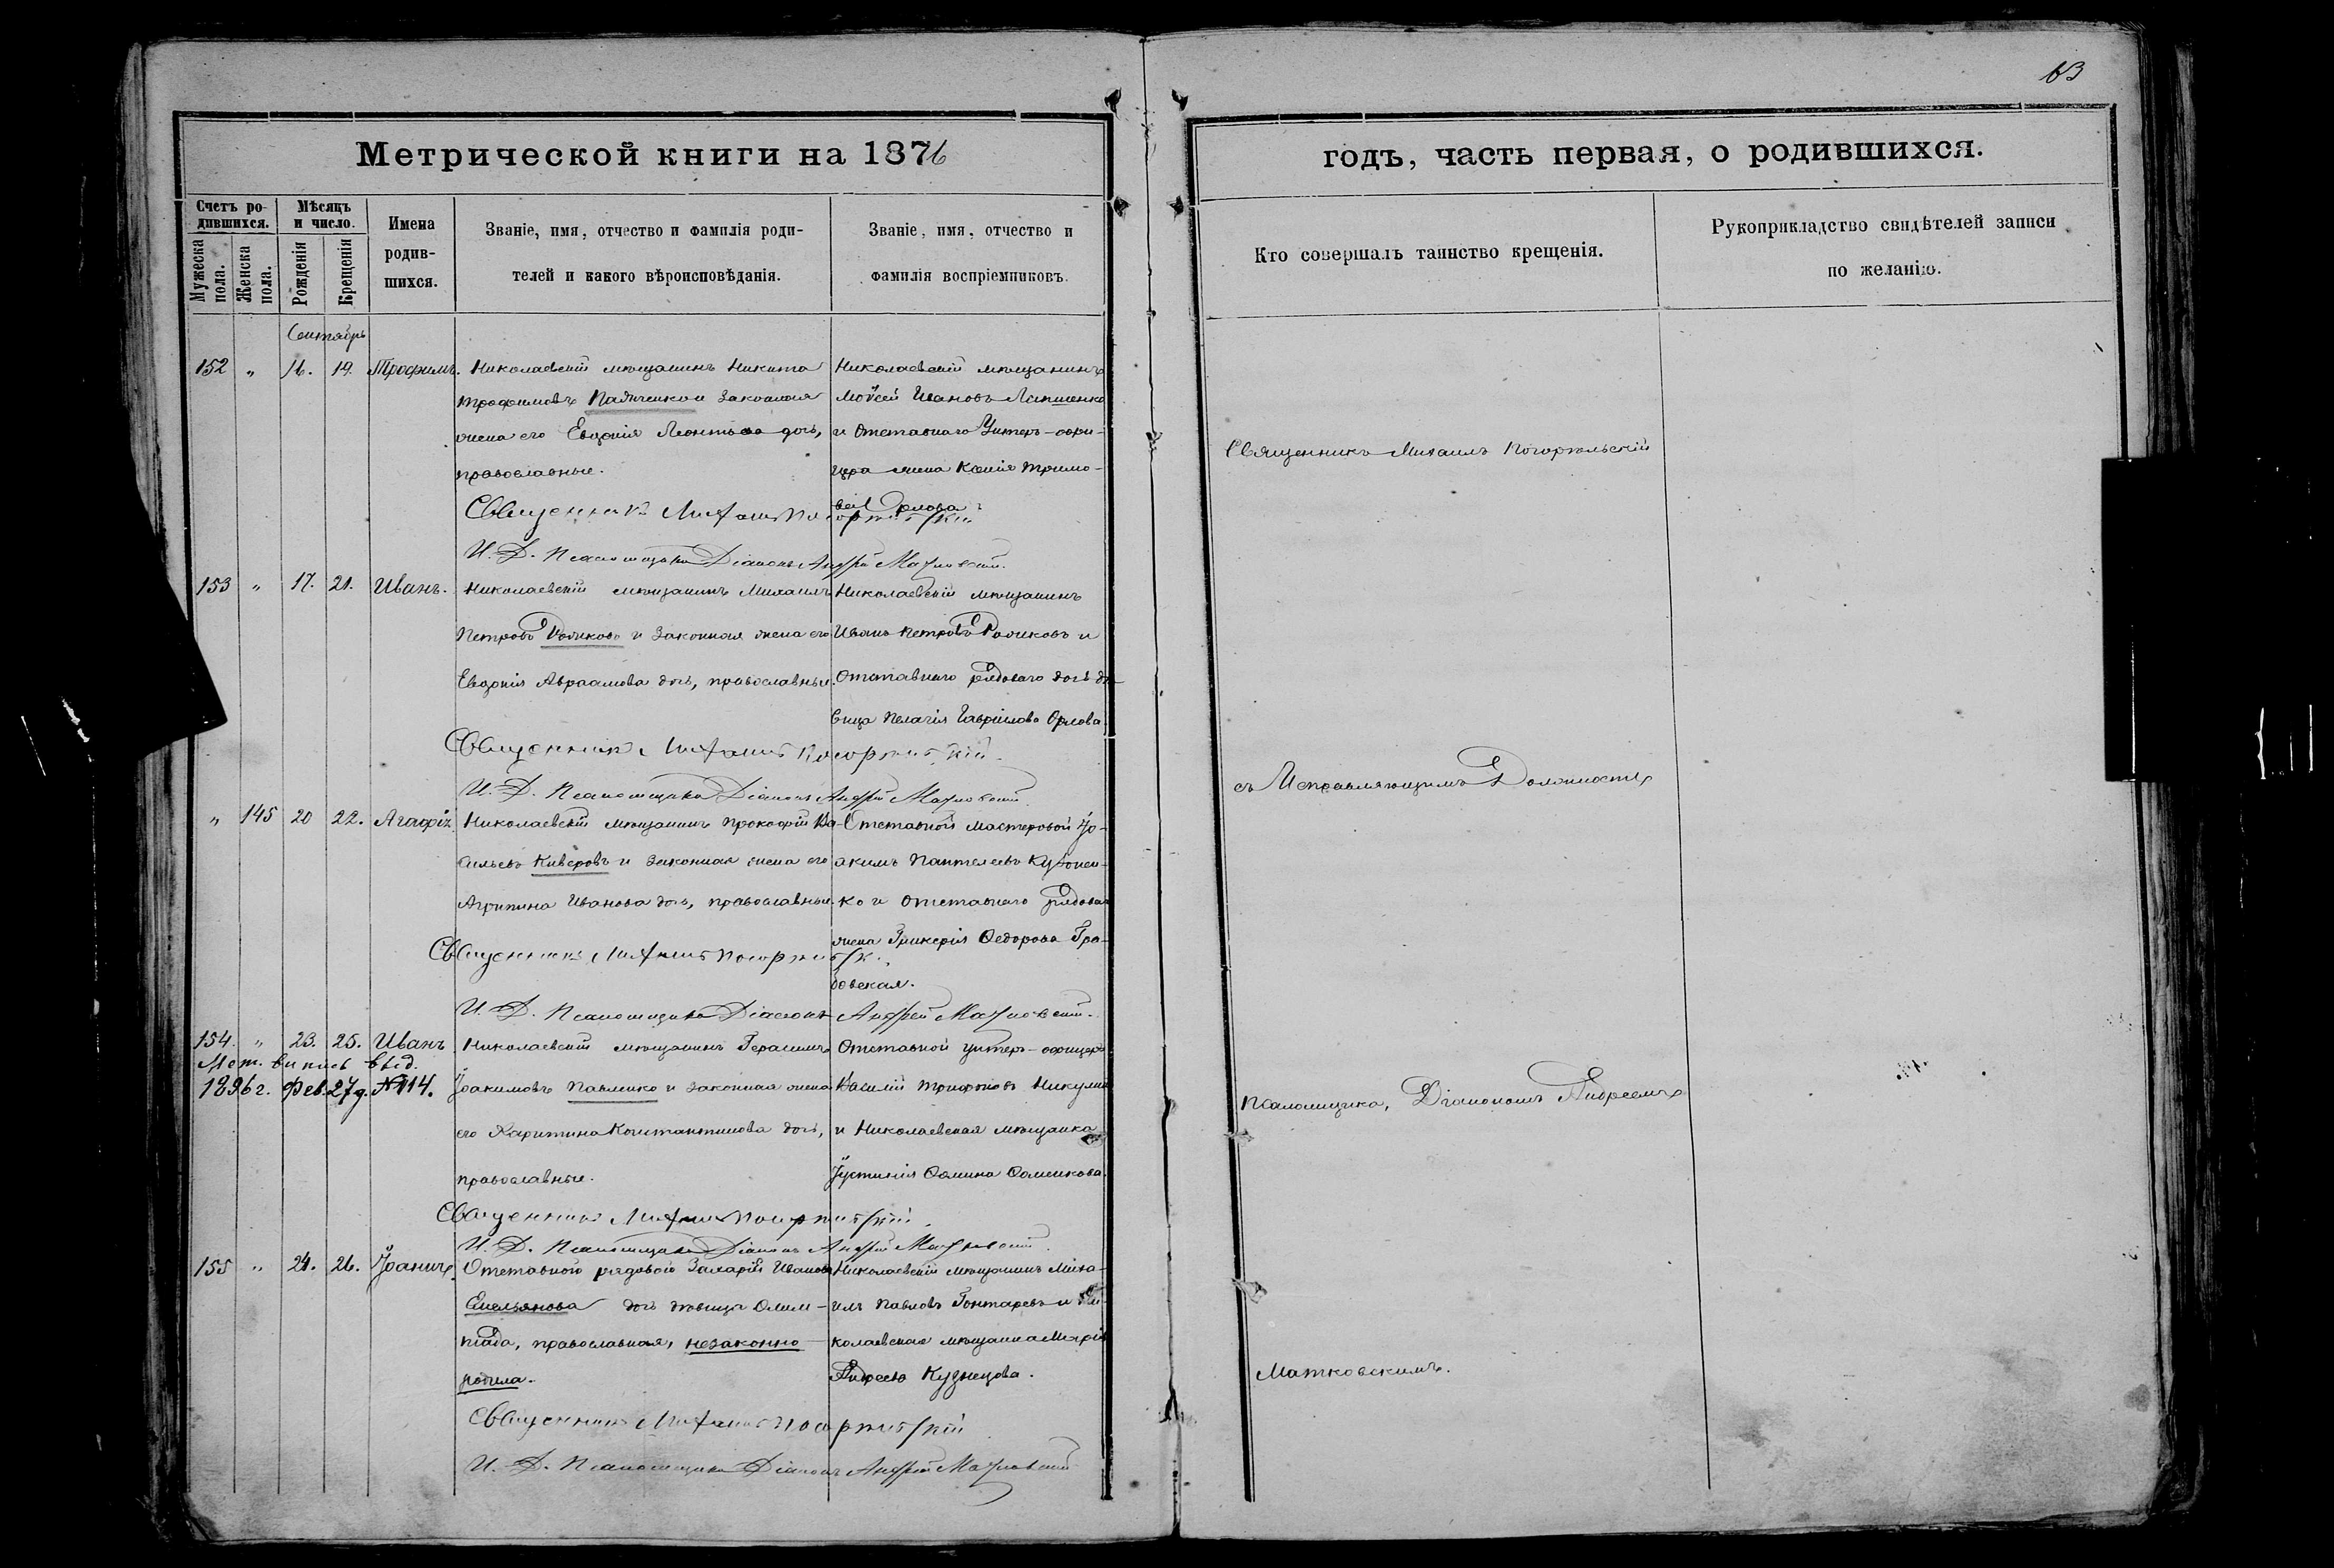 63
Метрической книги на 1876
годъ, часть первая, о родившихся.
Счетъ ро-
дившихся.
Мужеска пола.
Женска пола.
Мѣсяцъ
и число.
Рожденія
Крещенія
Имена
родив-
шихся.
Званіе, имя, отчество и фамилія роди-
телей и какого вѣроисповѣданія.
Званіе, имя, отчество и
фамилія воспріемниковъ.
Кто совершалъ таинство крещенія.
Рукоприкладство свидѣтелей записи
по желанію.
Сентябрь
152 " 16. 19. Трофимъ. Николаевскій мѣщанинъ Никита
Трофимовъ и законная
жена его Евдокія Леонтьева дочь,
православные.
Николаевскій мѣщанинъ
Мойсей Ивановъ Лапшенко
и отставнаго Унтеръ-офи-
цера жена Ксенія
Орлова
Священникъ Михаилъ Погорѣльскій
И. Д. Псаломщика Діаконъ Андрей Матковскій.
153 " 17. 21. Иванъ. Николаевскій мѣщанинъ Михаилъ
Петровъ и законная жена его
Евдокія Авраамова дочь, православные.
Николаевскій мѣщанинъ
Иванъ Петровъ и
отставнаго рядоваго дочь дѣ-
вица Пелагія Гавріилова Орлова.
Священникъ Михаилъ Погорѣльскій.
И. Д. Псаломщика Діаконъ Андрей Матковскій.
" 145 20 22. Агафія Николаевскій мѣщанинъ Прокофій Ва-
сильевъ Киверовъ и законная жена его
Агрипина Иванова дочь, православные.
Отставной мастеровой Іо-
акимъ Пантелеевъ
ко и отставнаго рядоваго
жена Гликерія Ѳедорова Гра-
бовская.
Священникъ Михаилъ Погорѣльск.
И. Д. Псаломщика Діаконъ Андрей Матковскій.
154. " 23. 25. Иванъ Николаевскій мѣщанинъ Герасимъ
Іоакимовъ Павленко и законная жена
его Харитина Константинова дочь,
православные.
Мет. випись выд.
1896 г. Фев. 27 д. № 114.
Отставной унтеръ-офицеръ
Василій Трифоновъ Никулин
и Николаевская мѣщанка
Іустинія Ѳомина Ѳоменкова.
Священникъ Михаилъ Погорѣльскій.
И. Д. Псаломщика Діаконъ Андрей Матковскій.
155 " 24. 26. Іоаннъ. Отставного рядового Захарія Иванова
Емельянова дочь дѣвица Олим-
піада, православная, незаконно
родила.
Николаевскій мѣщанинъ Миха-
илъ Павловъ Гонтаревъ и Ни-
колаевская мѣщанка Марія
Андреева Кузнецова.
Священникъ Михаилъ Погорѣльскій
И. Д. Псаломщика Діаконъ Андрей Матковскій
Священникъ Михаилъ Погорѣльскій
съ Исправляющимъ Должность
псаломщика, Діакономъ Андреемъ
Матковскимъ.